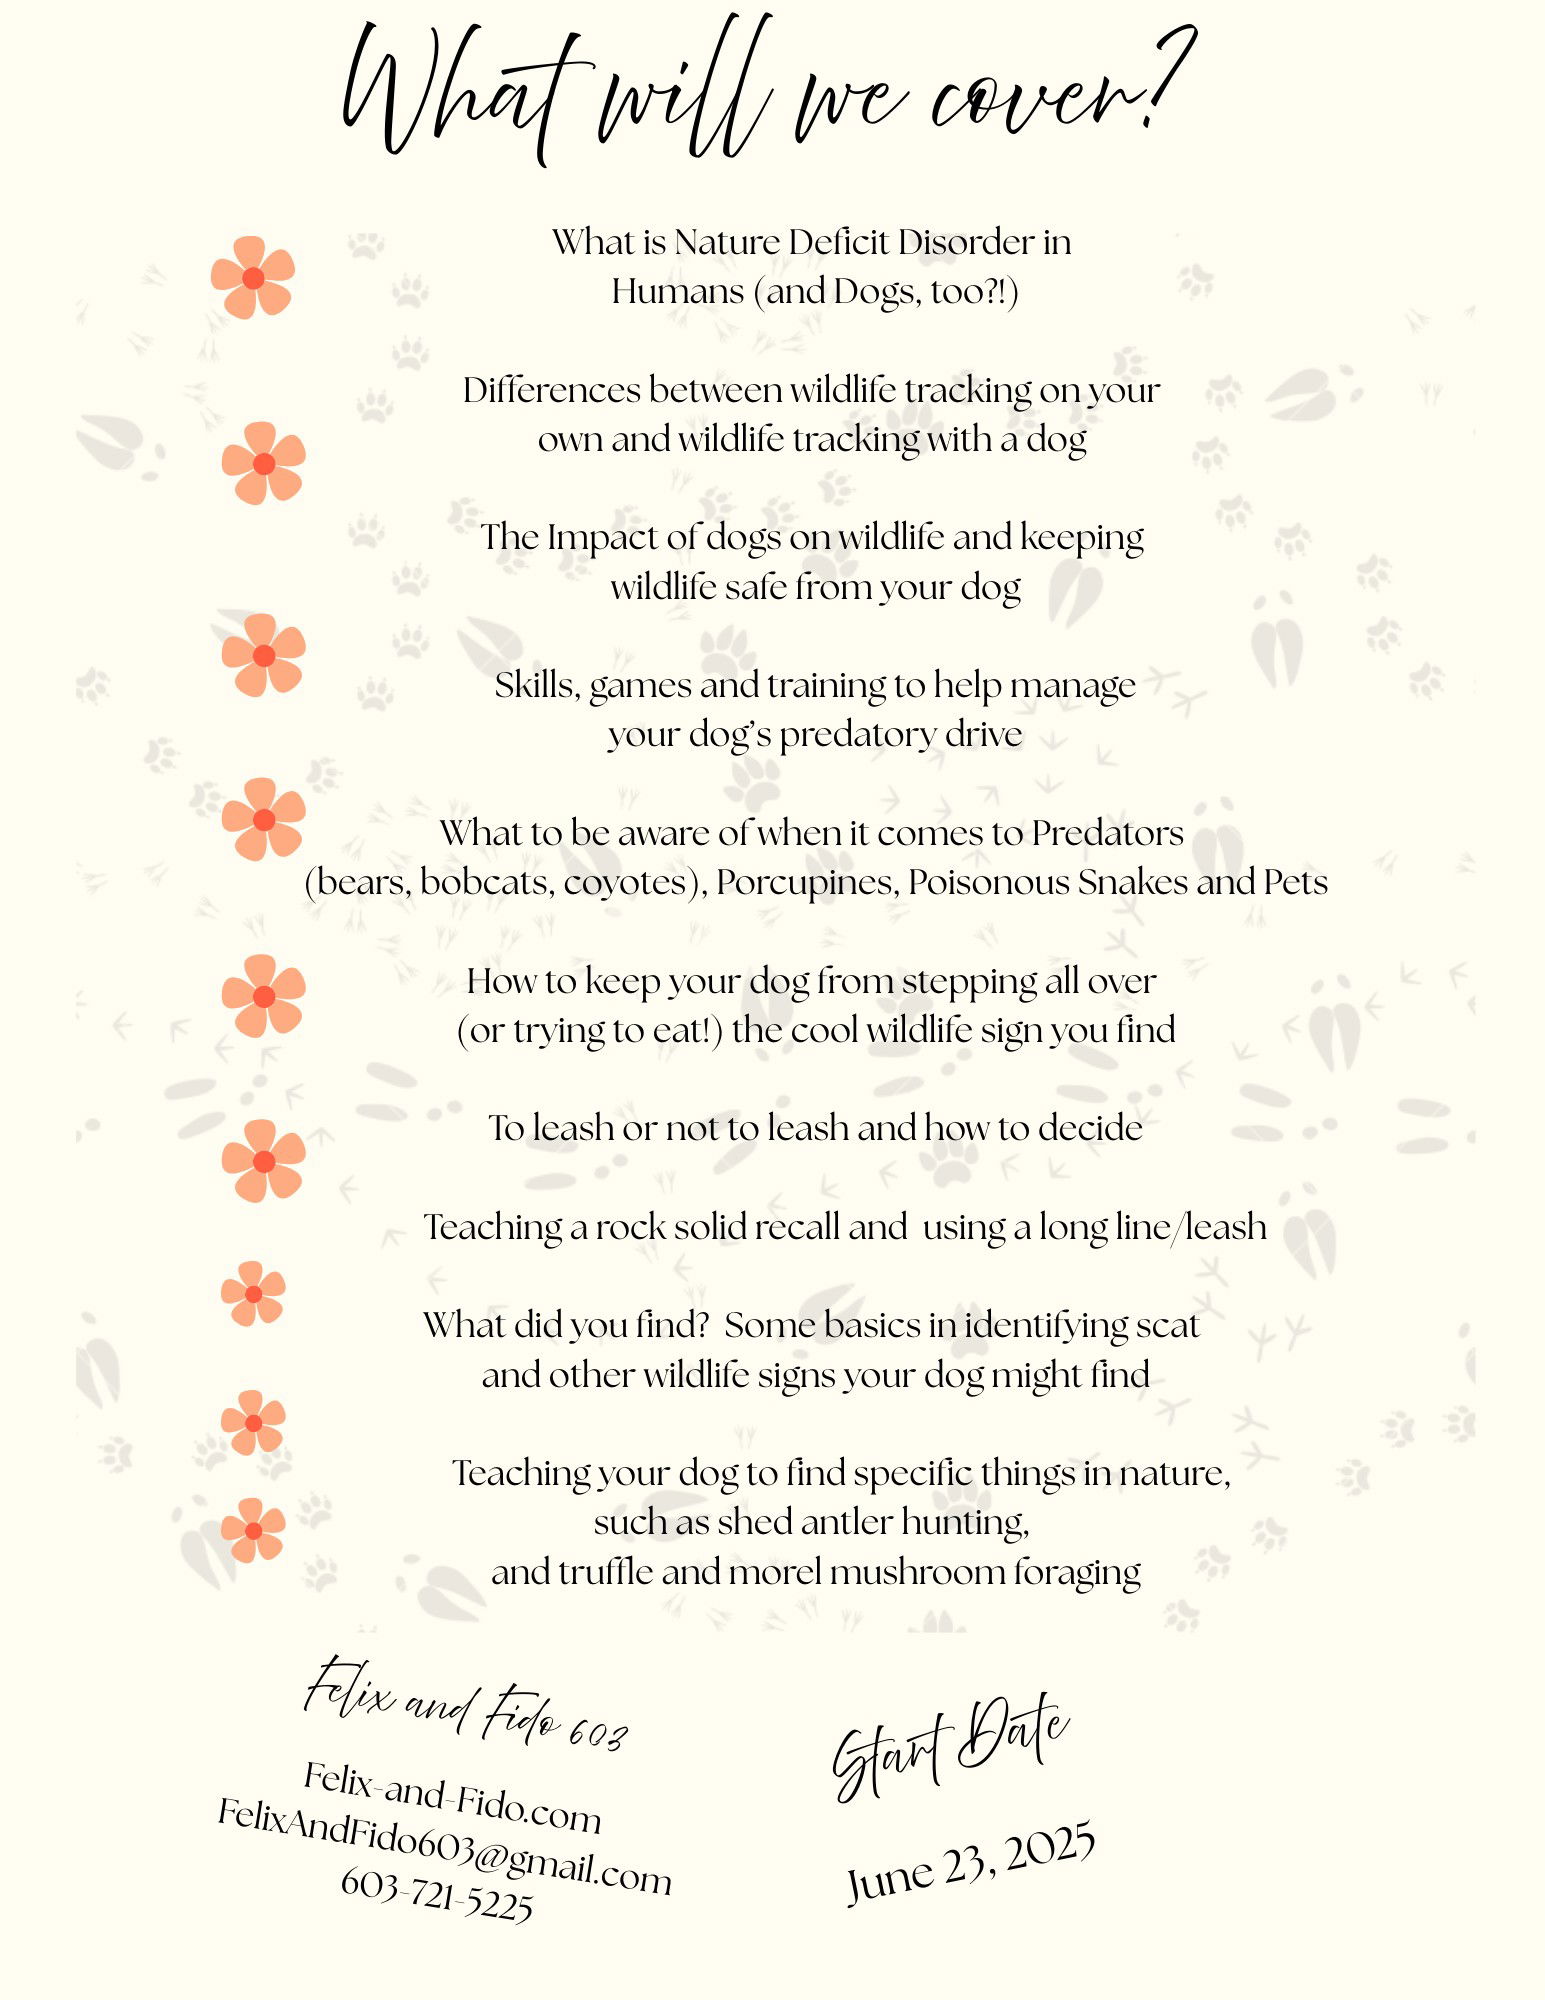 What will we cover?
What is Nature Deficit Disorder in
Humans (and Dogs, too?!)
Differences between wildlife tracking on your
own and wildlife tracking with a dog
The Impact of dogs on wildlife and keeping
wildlife safe from your dog
Skills, games and training to help manage
your dog's predatory drive
What to be aware of when it comes to Predators
(bears, bobcats, coyotes), Porcupines, Poisonous Snakes and Pets
How to keep your dog from stepping all over
(or trying to eat!) the cool wildlife sign you find
To leash or not to leash and how to decide
Teaching a rock solid recall and  using a long line/leash
What did you find?  Some basics in identifying scat
and other wildlife signs your dog might find
Teaching your dog to find specific things in nature,
such as shed antler hunting,
and truffle and morel mushroom foraging
Felix and Fido 603
Felix-and-Fido.com
FelixAndFido603@gmail.com
603-721-5225
Start Date
June 23, 2025